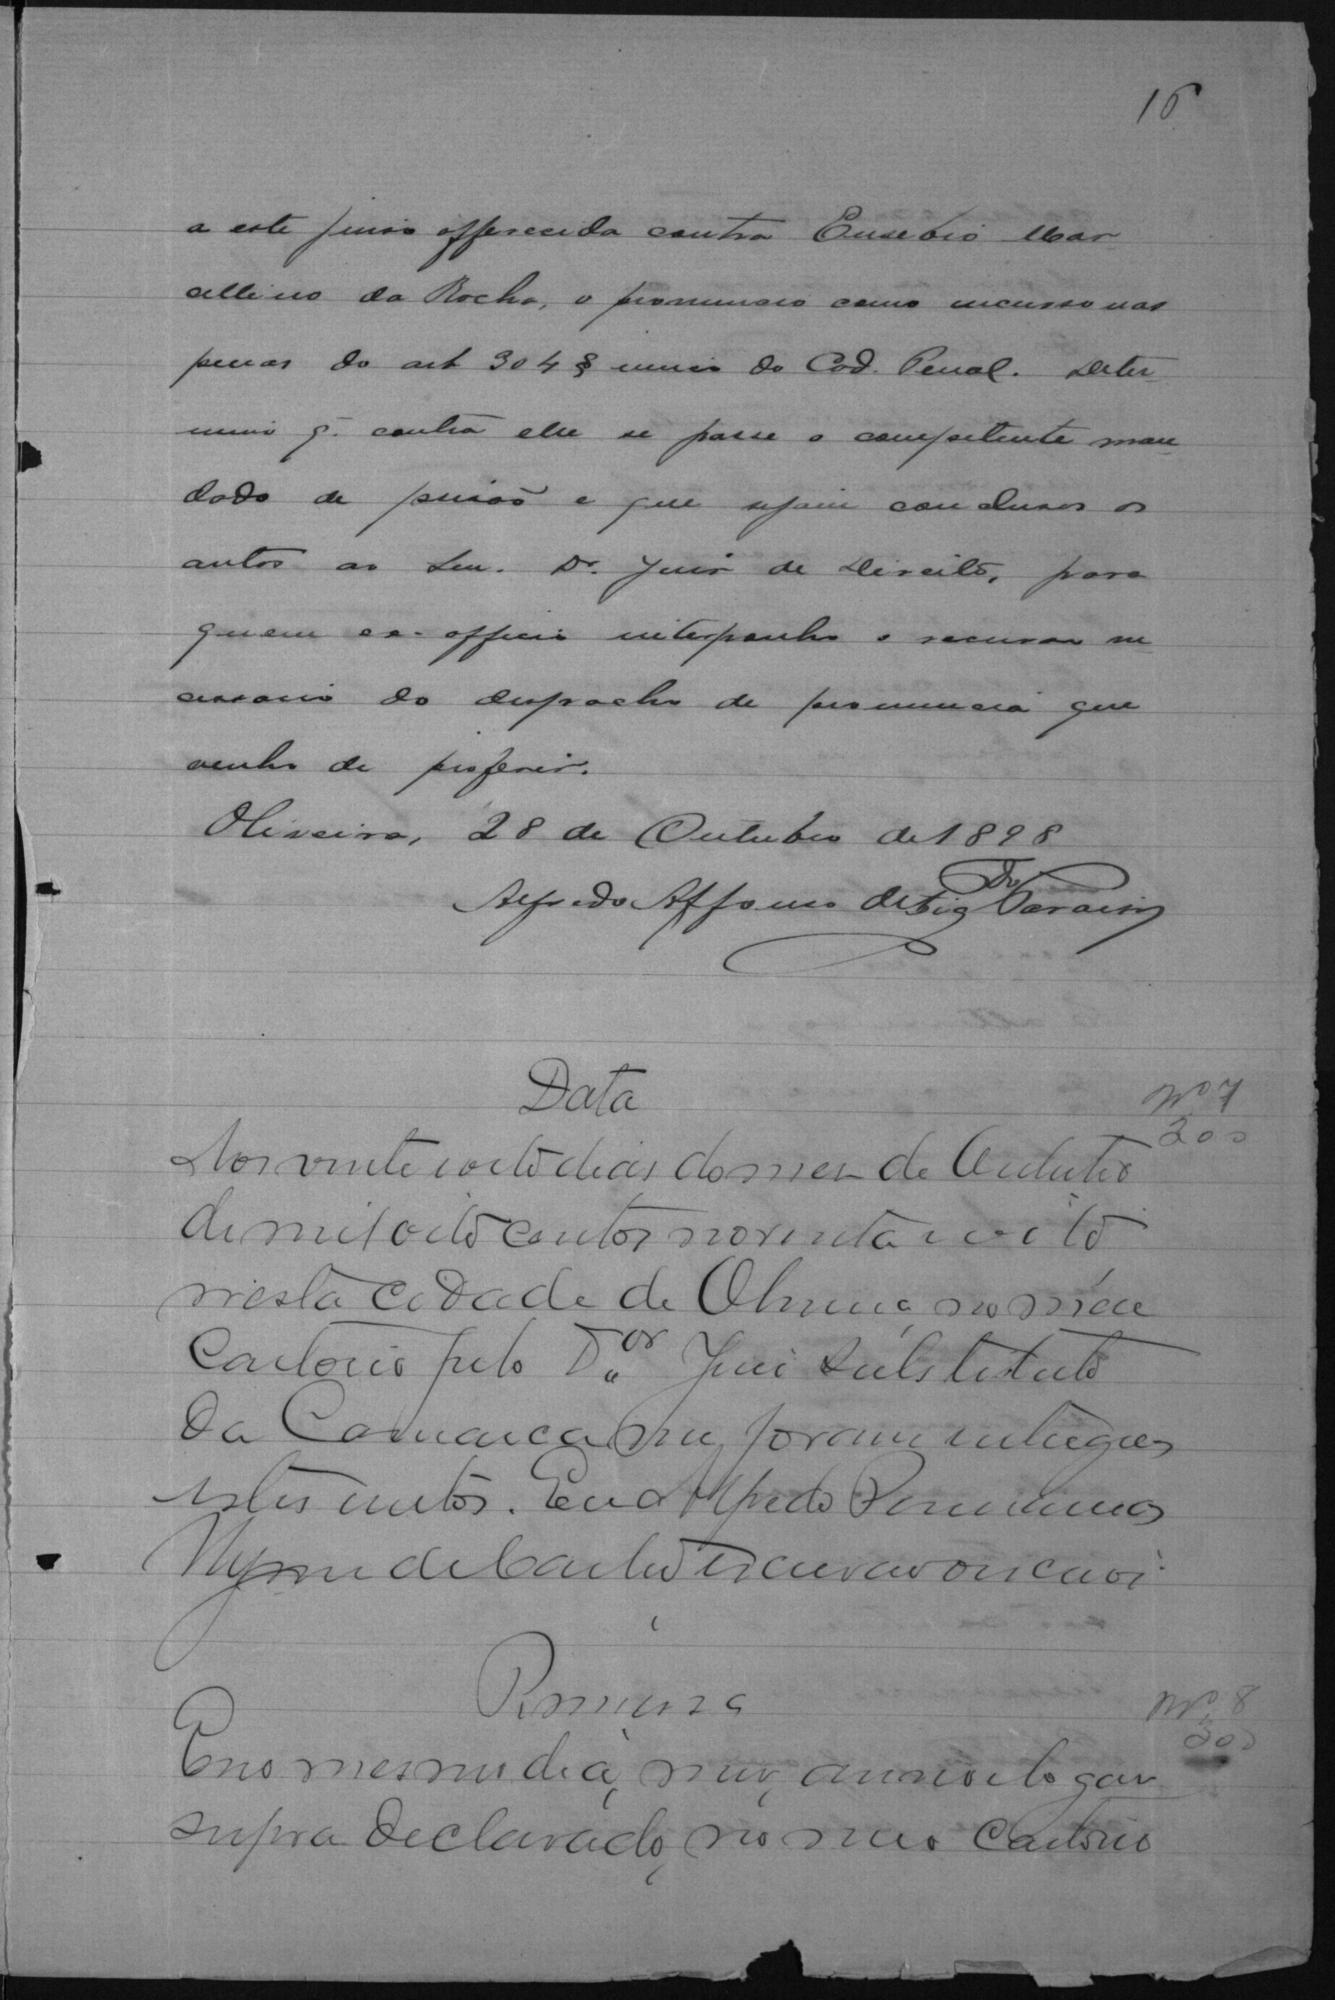 16
a este juiso offerecida contra Eusebio Mar
cellino da Rocha, o pronuncio como incurso nas
penas do art 304 § unico do Cod. Penal. Deter
mino q. contra elle se passe o competente man
dado de prisão e que sejam conclusos os
autos ao Sen. Dr. Juiz de Direito, para
quem ex-officio interponho o recurso ne
cessario do despacho de pronuncia que
venho de proferir.
Oliveira, 28 de Outubro de 1898
Alfredo Affonso de
Data
Nº 7
200
Aos vinte e oito dias do mez de Outubro
de mil oito centos noventa e oito
nesta Cidade de Oliveira, no meu
Cartorio pelo Dor Juiz Substituto
da Comarca me foram entregues
estes autos. Eu Alfredo
de Castro escrivão o escrevi
Remessa
Nº 8
300
E no mesmo dia, mez, anno e logar
supra declarado, no meu Cartorio